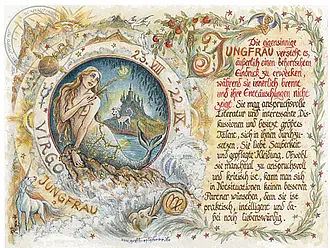 VIRGO
JUNGFRAU
23. VIII
22. IX
Die eigensinnige
JUNGFRAU versteht es,
äußerlich einen beherrschten
Eindruck zu erwecken,
während sie innerlich brennt
und ihre Enttäuschungen nicht
zeigt. Sie mag anspruchsvolle
Literatur und interessante Dis-
kussionen und besitzt großes
Talent, sich in ihnen durchzu-
setzen. Sie liebt Sauberkeit
und gepflegte Kleidung. Obwohl
sie manchmal zu anspruchsvoll
und kritisch ist, kann man sich
in Notsituationen keinen besseren
Partner wünschen, denn sie ist
praktisch, intelligent und da-
bei noch liebenswürdig.